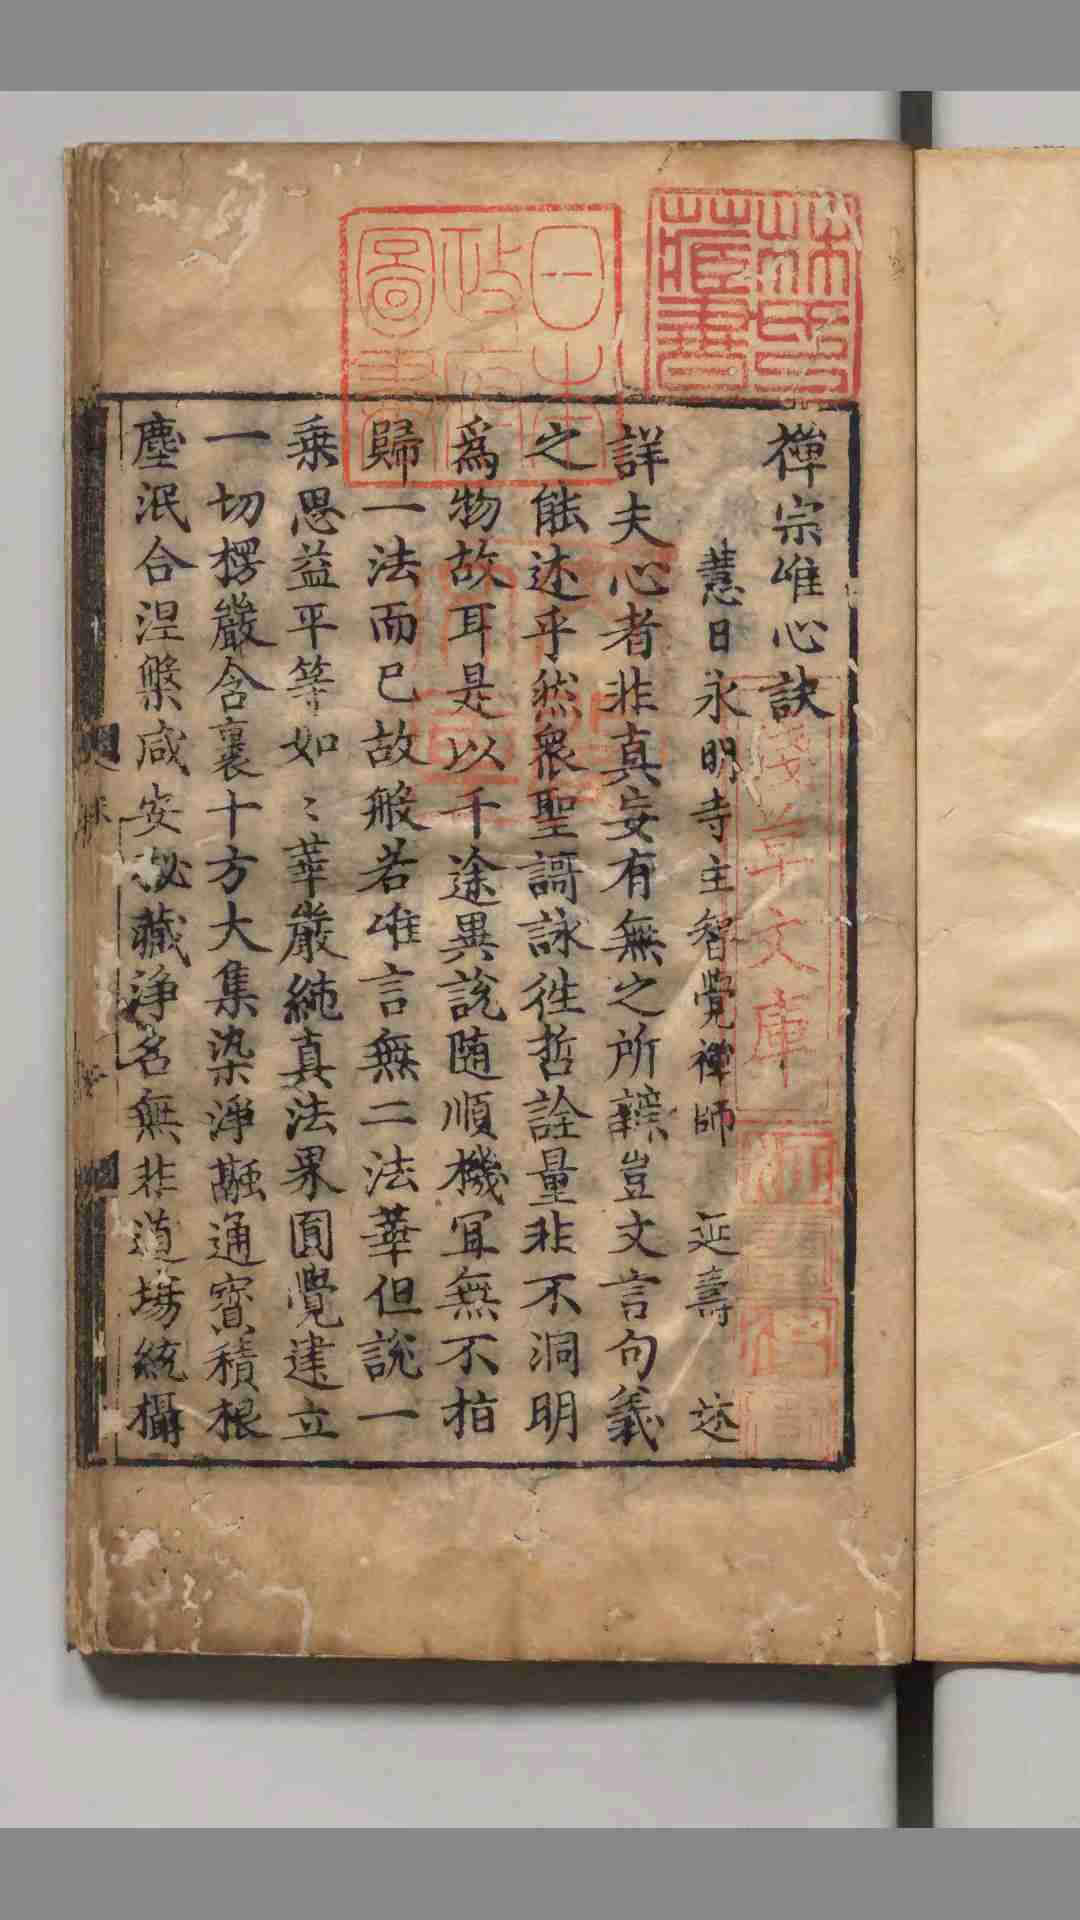 禪宗唯心訣
慧日永明寺主智覺禪師 延壽 述
詳夫心者非真妄有無之所辯豈文言句義
之能述乎然衆聖謌詠徃哲詮量非不洞明
爲物故耳是以千途異說隨順機冝無不柏
歸一法而已故般若唯言無二法華但說一
乗思益平等如〻華嚴純真法界圓覺建立
一切楞嚴含裹十方大集染淨融通寳積根
塵泯合涅槃咸安秘藏淨名無非道塲統攝
林氏藏書
日本政府圖書
淺草文庫